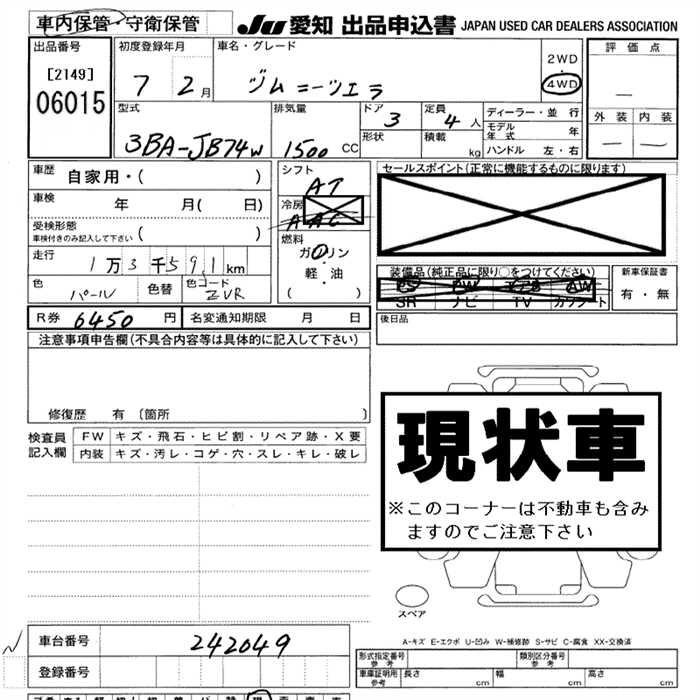 車内保管・守衛保管
JU 愛知 出品申込書 JAPAN USED CAR DEALERS ASSOCIATION
出品番号
[2149]
06015
初度登録年月
7 2月
車名・グレード
ジムニーシエラ
2WD
・
4WD
評価点
—
外装 内装
— —
型式
3BA-JB74W
排気量
1500 CC
ドア
3
形状
定員
4人
積載
kg
ディーラー・並行
モデル年式 年
ハンドル 左・右
車歴 自家用・( )
車検 年 月( 日)
受検形態
車検付きのみ記入して下さい ( )
走行
1万3千591km
色
パール
色替
色コード
ZVR
シフト
AT
冷房
AAC
燃料
ガソリン
・
軽・油
( )
セールスポイント(正常に機能するものに限ります)
装備品(純正品に限り○をつけてください)
PS PW エアB AW
SR ナビ TV カワシート
新車保証書
有・無
R券 6450円
名変通知期限 月 日
後日品
注意事項申告欄(不具合内容等は具体的に記入して下さい)
修復歴 有〔箇所 〕
検査員
記入欄
FW キズ・飛石・ヒビ割・リペア跡・X要
内装 キズ・汚レ・コゲ・穴・スレ・キレ・破レ
現状車
※このコーナーは不動車も含み
ますのでご注意下さい
スペア
A-キズ E-エクボ U-凹み W-補修跡 S-サビ C-腐食 XX-交換済
車台番号 242049
登録番号
形式指定番号
参考
類別区分番号
参考
車庫証明用
参考
長さ cm 幅 cm 高さ cm